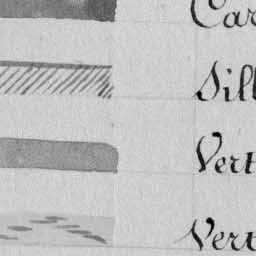 Car
Sill
Vert
Vert